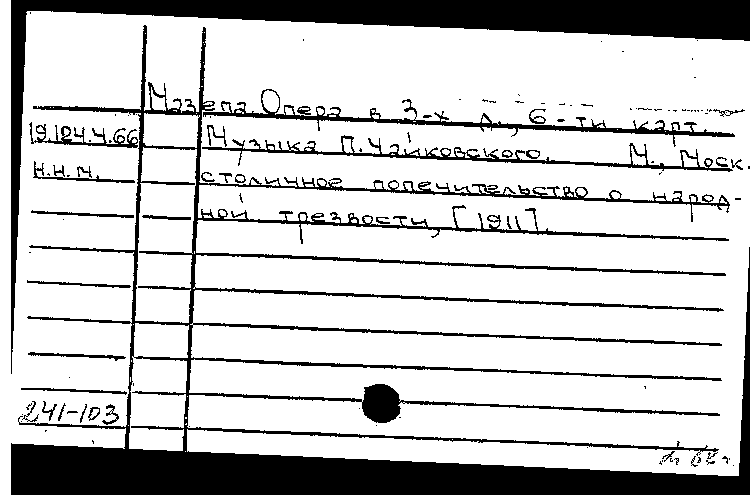 Мазепа. Опера в 3-х д., 6-ти карт.
19.124.4.66 Музыка П. Чайковского. М., Моск.
Н.Н.М. столичное попечительство о народ-
ной трезвости, [1911].
241-103